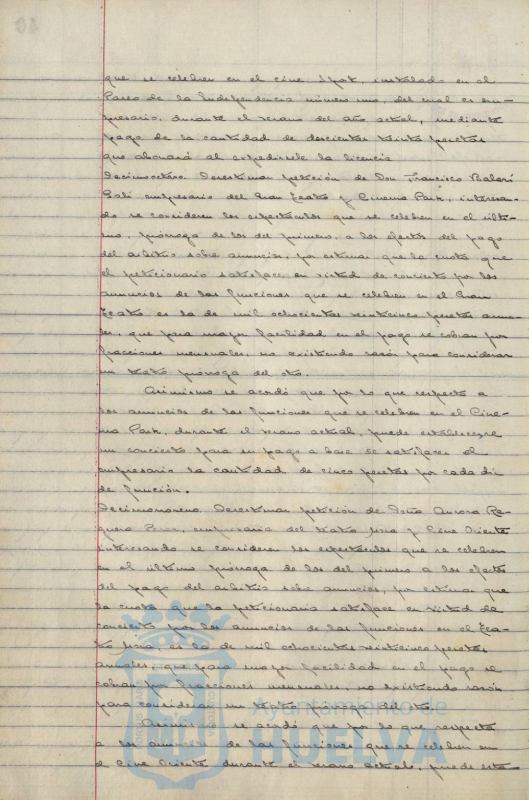 que se celebren en el cine Spot, instalado en el
Paseo de la Independencia número uno, del cual es em-
presario, durante el verano del año actual, mediante
pago de la cantidad de doscientas treinta pesetas
que abonará al expedírsele la licencia
Decimoctavo. Desestimar petición de Don Francisco
empresario del Gran Teatro y Cinema Park, interesan-
do se consideren los espectáculos que se celeben en el últi-
mo, prórroga de los del primero, a los efectos del pago
del arbitrio sobre anuncios, por estimar que la cuota que
el peticionario satisface, en virtud de concierto por los
anuncios de las funciones que se celeben en el Gran
Teatro es la de mil ochocientas veinticinco pesetas anua-
les, que para mayor facilidad en el pago se cobran por
fracciones mensuales, no existiendo razón para considerar
un teatro prórroga del otro.
Asimismo se acordó que por lo que respecta a
los anuncios de las funciones que se celeben en el Cine-
ma Park, durante el verano actual, puede establecerse
un concierto para su pago a base de satisfacer el
empresario la cantidad de cinco pesetas por cada día
de función.
Decimonoveno. Desestimar petición de Doña Aurora Re-
guera Perez, empresaria del teatro Mora y Cine Oriente
interesando se consideren los espectáculos que se celeben
en el último prórroga de los del primero a los efectos
del pago del arbitrio sobre anuncios, por estimar que
la cuota que la peticionaria satisface en virtud de
concierto por los anuncios de las funciones en el Tea-
tro Mora, es la de mil ochocientas veinticinco pesetas
anuales, que para mayor facilidad en el pago se
cobran por fracciones mensuales, no existiendo razón
para considerar un teatro prórroga del otro.
Asimismo se acordó que por lo que respecta
a los anuncios de las funciones que se celeben en
el Cine Oriente durante el verano actual, puede esta-
Ayuntamiento de
HUELVA